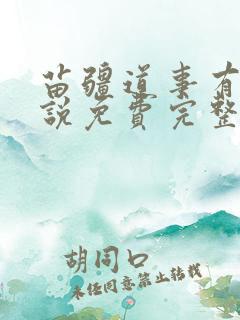 苗疆道事有
說免費完整
胡同口
未经同意禁止转载